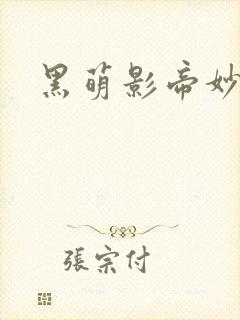 黑萌影帝妙
張宗付